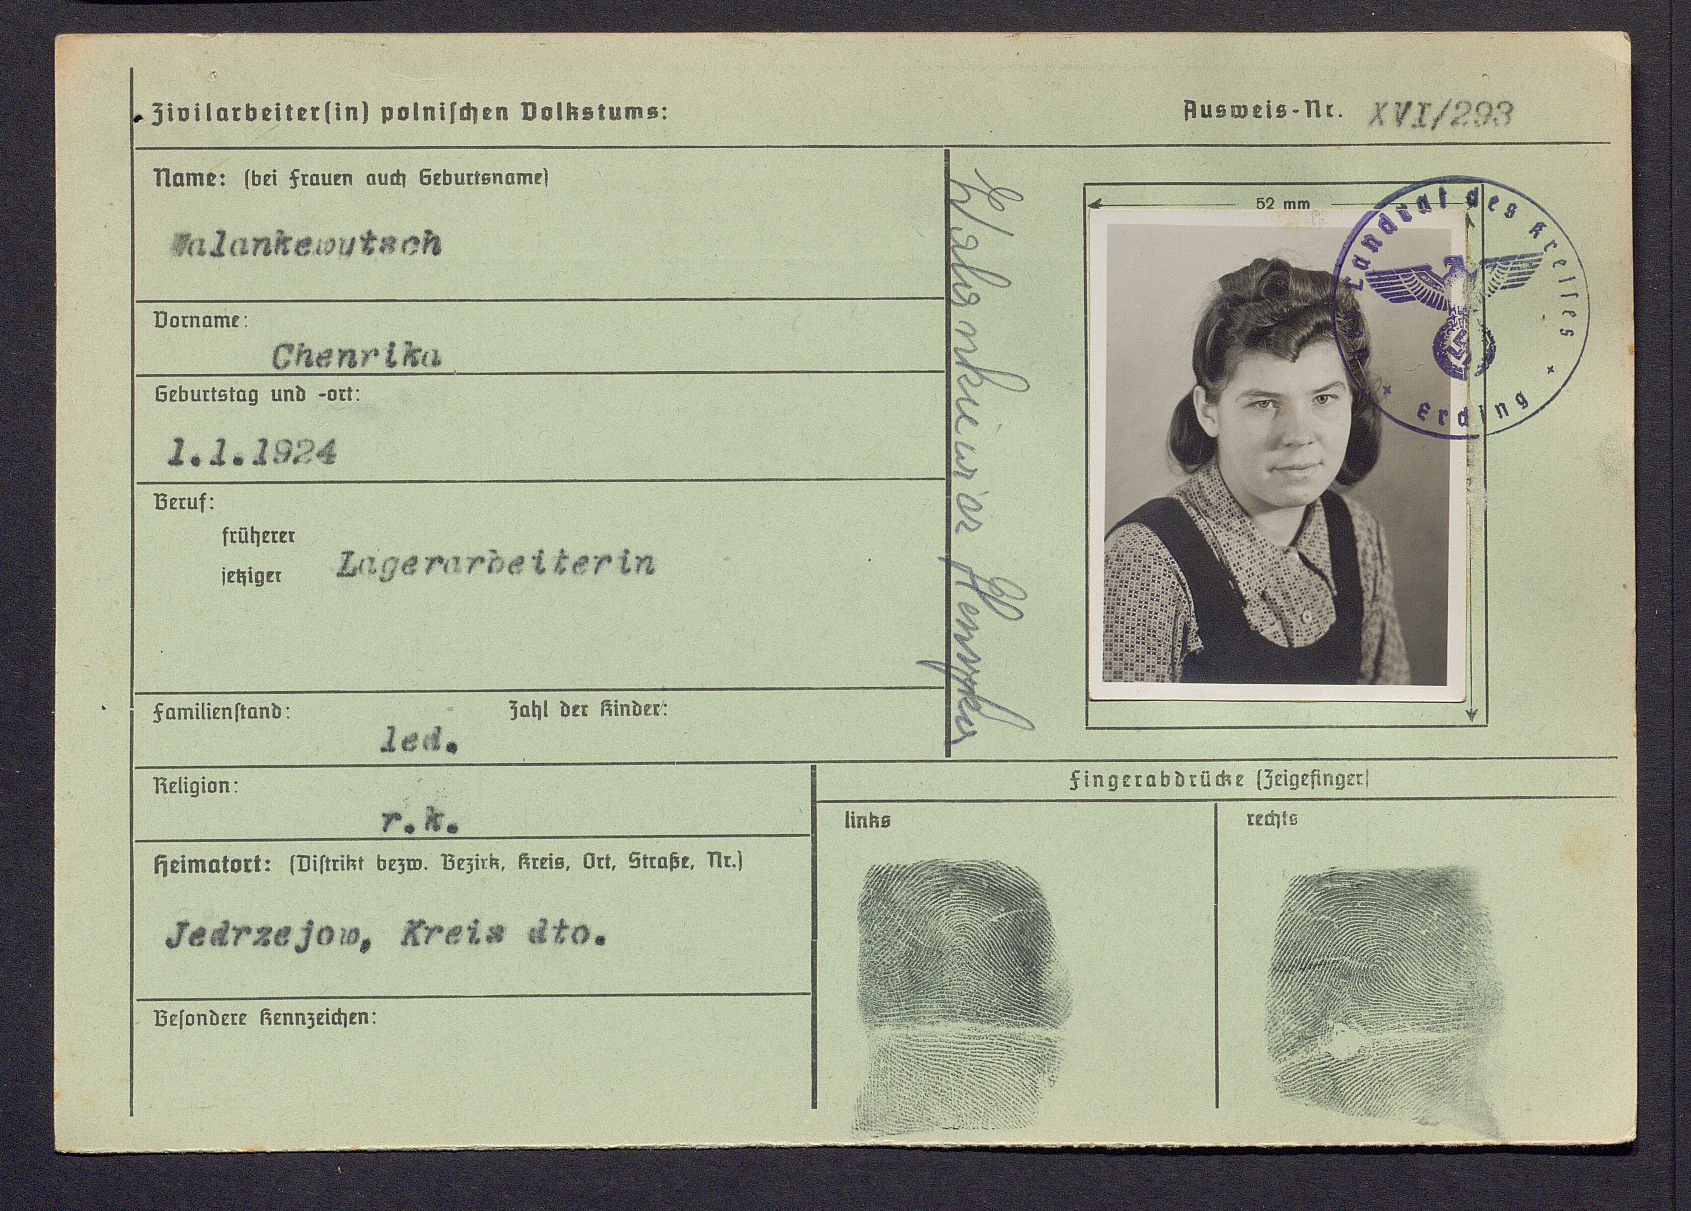 Zivilarbeiter(in) polnischen Volkstums:
Ausweis-Nr. XVI/293
Name: (bei Frauen auch Geburtsname)
Walankewutsch
Vorname:
Chenrika
Geburtstag und -ort:
1.1.1924
Beruf:
früherer
jetziger
Lagerarbeiterin
Familienstand:
led.
Zahl der Kinder:
Religion:
r.k.
Heimatort: (Distrikt bezw. Bezirk, Kreis, Ort, Straße, Nr.)
Jedrzejow, Kreis dto.
Besondere Kennzeichen:
52 mm
Landrat des Kreises
* Erding *
Fingerabdrücke (Zeigefinger)
links
rechts